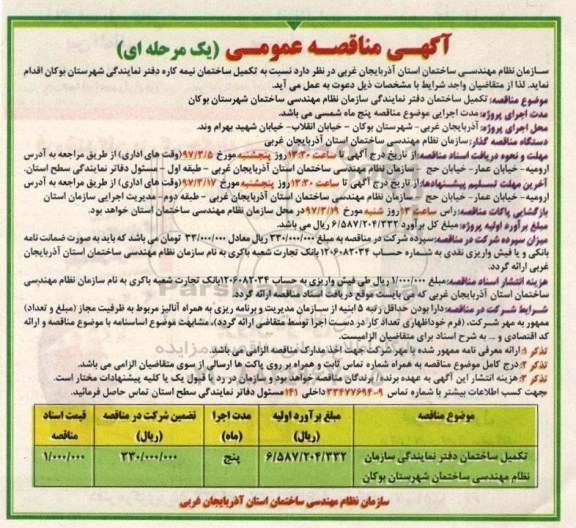 آگهی مناقصه عمومی (یک مرحله ای)
سازمان نظام مهندسی ساختمان استان آذربایجان غربی در نظر دارد نسبت به تکمیل ساختمان نیمه کاره دفتر نمایندگی شهرستان بوکان اقدام
نماید. لذا از متقاضیان واجد شرایط با مشخصات ذیل دعوت به عمل می آید.
موضوع مناقصه: تکمیل ساختمان دفتر نمایندگی سازمان نظام مهندسی ساختمان شهرستان بوکان
مدت اجرای پروژه: مدت اجرایی موضوع مناقصه پنج ماه شمسی می باشد.
محل اجرای پروژه: آذربایجان غربی- شهرستان بوکان - خیابان انقلاب- خیابان شهید بهرام وند.
دستگاه مناقصه گذار: سازمان نظام مهندسی ساختمان استان آذربایجان غربی
مهلت و نحوه دریافت اسناد مناقصه: از تاریخ درج آگهی تا ساعت ۱۳:۳۰ روز پنجشنبه مورخ ۹۷/۳/۵ (وقت های اداری) از طریق مراجعه به آدرس
ارومیه- خیابان عمار- خیابان حج - سازمان نظام مهندسی ساختمان استان آذربایجان غربی - طبقه اول - مسئول دفاتر نمایندگی سطح استان.
آخرین مهلت تسلیم پیشنهادها: از تاریخ درج آگهی تا ساعت ۱۳:۳۰ روز پنجشنبه مورخ ۹۷/۳/۱۷ (وقت های اداری) از طریق مراجعه به آدرس
ارومیه- خیابان عمار- خیابان حج - سازمان نظام مهندسی ساختمان استان آذربایجان غربی - طبقه دوم- مدیریت اجرایی سازمان
بازگشایی پاکات مناقصه: راس ساعت ۱۳ روز شنبه مورخ ۹۷/۳/۱۹ در محل سازمان نظام مهندسی ساختمان استان خواهد بود.
مبلغ برآورد اولیه پروژه: مبلغ کل برآورد ۶/۵۸۷/۲۰۴/۳۳۲ ریال می باشد.
میزان سپرده شرکت در مناقصه: سپرده شرکت در مناقصه به مبلغ ۳۳۰/۰۰۰/۰۰۰ ریال معادل ۳۳/۰۰۰/۰۰۰ تومان می باشد که باید به صورت ضمانت نامه
بانکی و یا فیش واریزی نقدی به شماره حساب ۱۲۰۶۰۸۲۰۳۴ بانک تجارت شعبه باکری به نام سازمان نظام مهندسی ساختمان استان آذربایجان
غربی ارائه گردد.
هزینه انتشار اسناد مناقصه: مبلغ ۱/۰۰۰/۰۰۰ ریال طی فیش واریزی به حساب ۱۲۰۶۰۸۲۰۳۴ بانک تجارت شعبه باکری به نام سازمان نظام مهندسی
ساختمان استان آذربایجان غربی که می بایست موقع دریافت اسناد مناقصه ارائه گردد.
شرایط شرکت در مناقصه: دارا بودن حداقل رتبه ۵ ابنیه از سازمان مدیریت و برنامه ریزی به همراه آنالیز مربوط به ظرفیت مجاز (مبلغ و تعداد)
ممهور به مهر شرکت، (فرم خوداظهاری تعداد کار در دست اجرا توسط متقاضی ارائه گردد)، مشابهت موضوع اساسنامه با موضوع مناقصه و ارائه
کد اقتصادی و ... به شرح اسناد برای متقاضیان الزامیست.
تذکر ۱: ارائه معرفی نامه ممهور شده با مهر شرکت جهت اخذ مدارک مناقصه الزامی می باشد.
تذکر ۲: درج کامل موضوع مناقصه به همراه شماره تماس ثابت و همراه بر روی پاکت ها ارسالی از سوی متقاضیان الزامی می باشد.
تذکر ۳: هزینه انتشار این آگهی به عهده برنده / برندگان مناقصه خواهد بود و سازمان در رد یا قبول یک یا کلیه پیشنهادات مختار است.
جهت کسب اطلاعات بیشتر با شماره تماس ۹-۳۳۴۷۷۶۹۴ داخلی ۱۴۱ مسئول دفاتر نمایندگی سطح استان تماس حاصل فرمائید.
موضوع مناقصه مبلغ برآورد اولیه (ریال) مدت اجرا (ماه) تضمین شرکت در مناقصه (ریال) قیمت اسناد مناقصه
تکمیل ساختمان دفتر نمایندگی سازمان نظام مهندسی ساختمان شهرستان بوکان ۶/۵۸۷/۲۰۴/۳۳۲ پنج ۳۳۰/۰۰۰/۰۰۰ ۱/۰۰۰/۰۰۰
سازمان نظام مهندسی ساختمان استان آذربایجان غربی